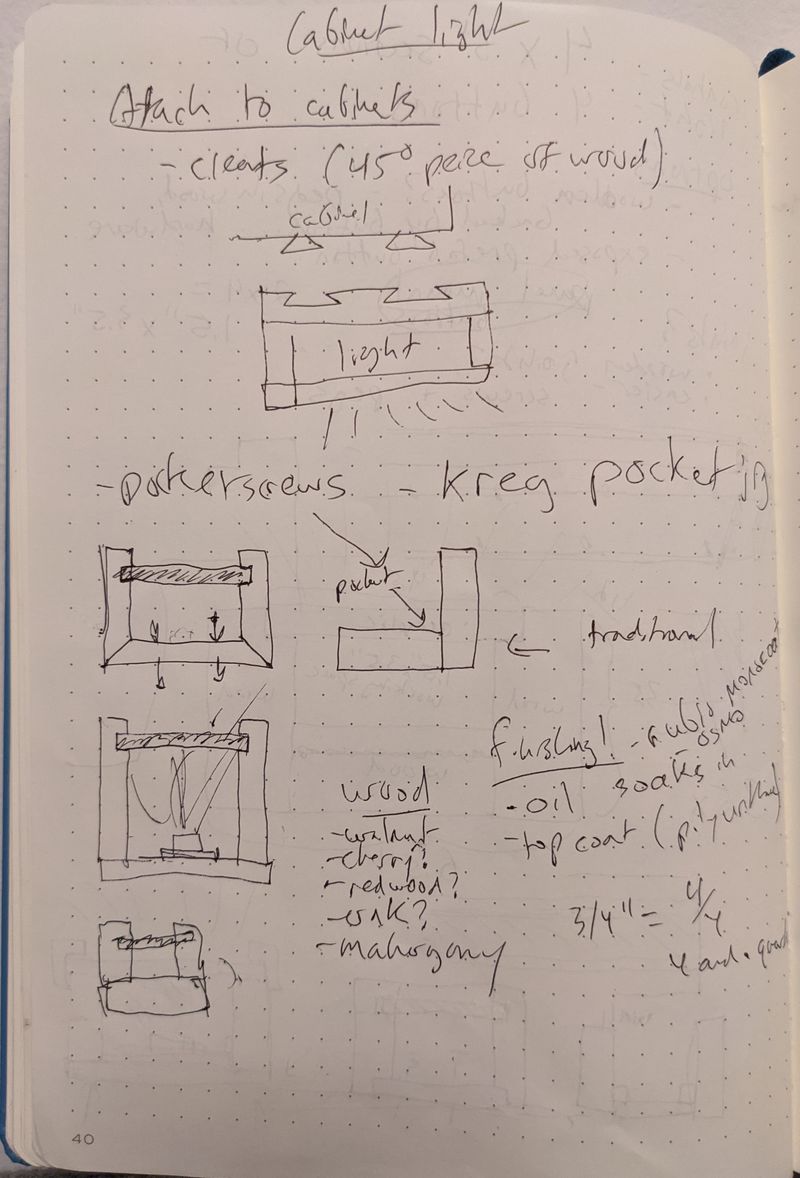 Cabinet light
Attach to cabinets
- cleats (45° peice of wood)
cabinet
light
- pocketscrews - Kreg pocket jig
pocket
traditional
finishing! - rubio monocoat
- osmo
- oil soaks in
- top coat (polyurithane)
wood
- walnut
- cherry?
- redwood?
- oak?
- mahogony
3/4" = 4/4
4 and.
40